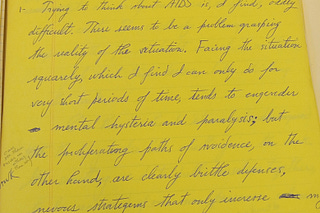 1- Trying to think about AIDS is, I find, oddly
difficult. There seems to be a problem grasping
the reality of the situation. Facing the situation
squarely, which I find I can only do for
very short periods of time, tends to engender
mental hysteria and paralysis; but
the proliferating paths of avoidence, on the
other hand, are clearly brittle defenses,
nervous strategems that only increase